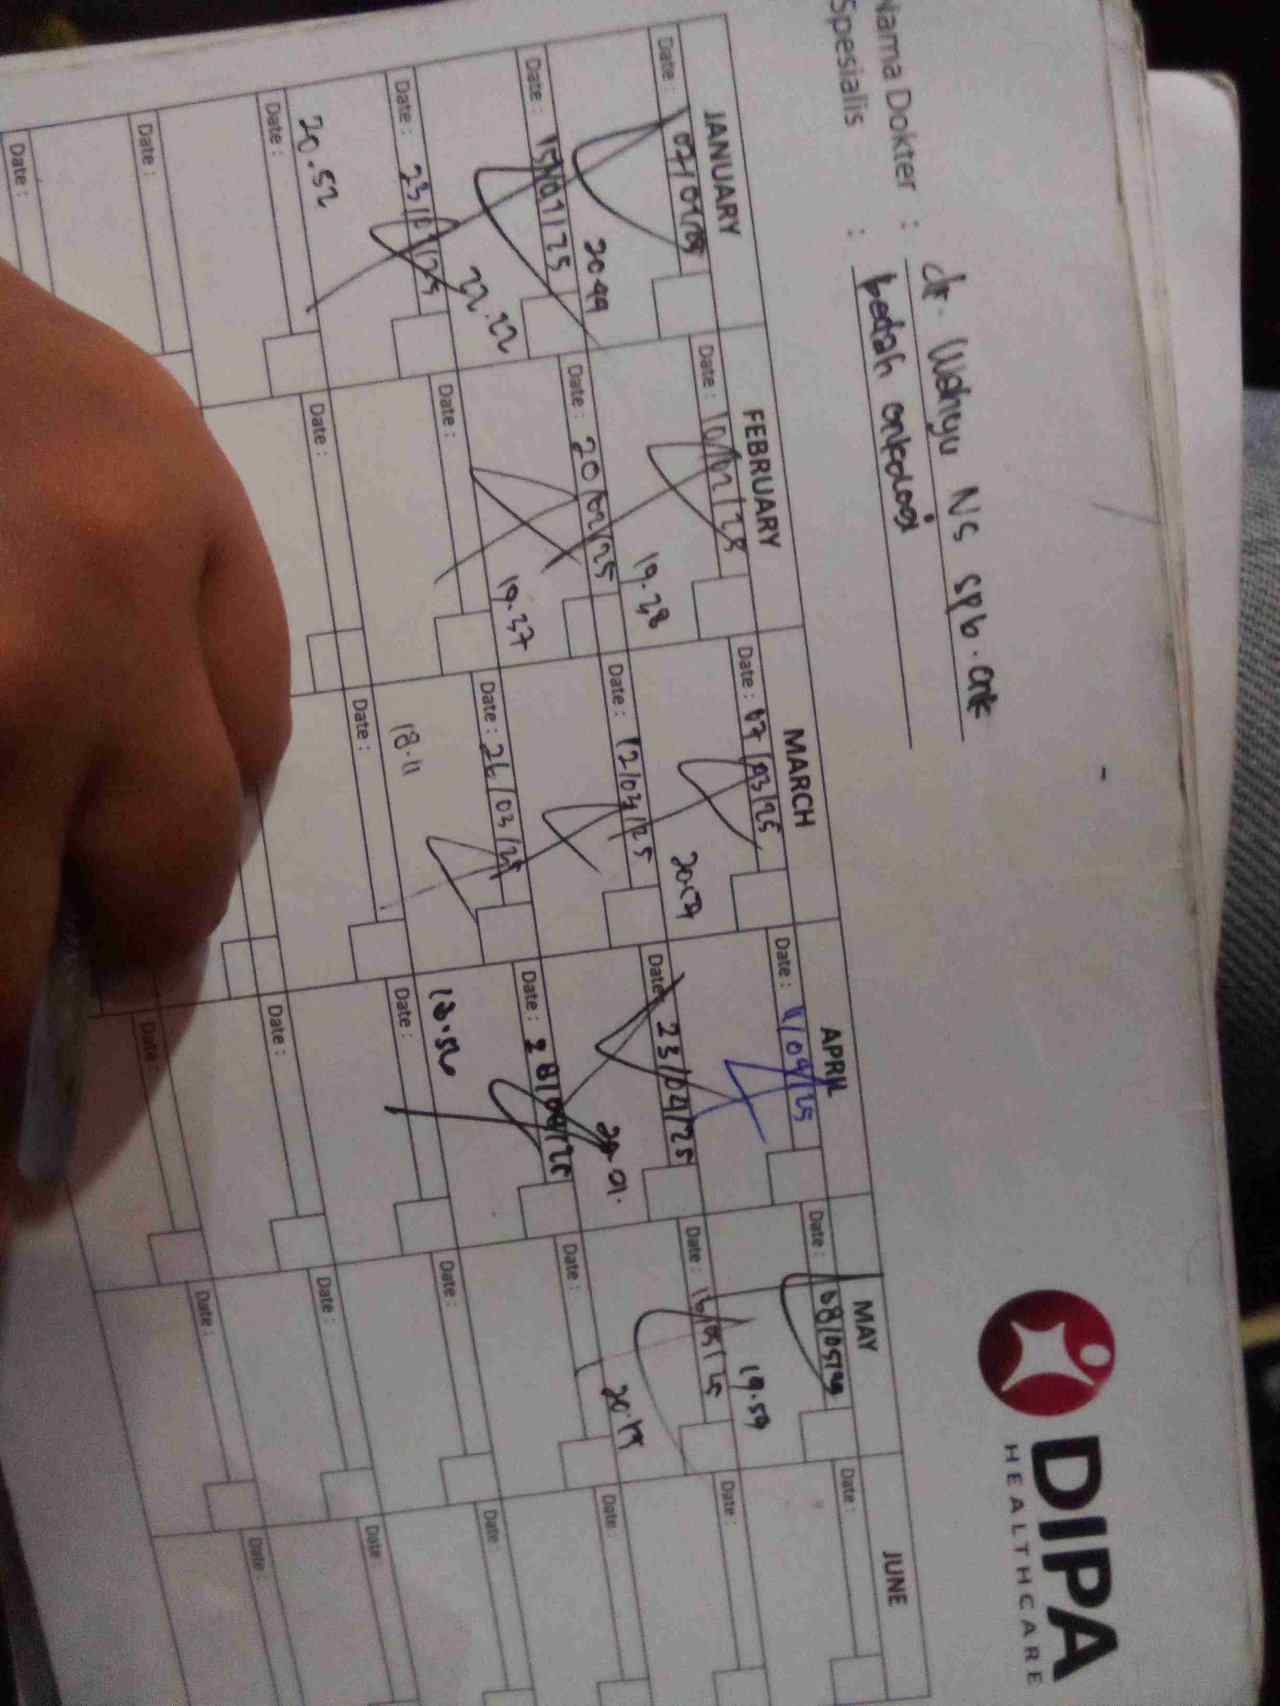 DIPA
HEALTHCARE
Nama Dokter : dr. Wahyu NS SpB. Onk
Spesialis : bedah onkologi
JANUARY FEBRUARY MARCH APRIL MAY JUNE
Date : 07/01/25 Date : 10/02/25 Date : 07/03/25 Date : Date : 08/05/25 Date :
20.49 19.38 19.59
Date : 15/01/25 Date : 20/02/25 Date : 12/03/25 Date : 23/04/25 Date : 16/05/25 Date :
22.22 19.37 20.01.
Date : 23/01/25 Date : Date : 26/03/25 Date : 28/04/25 Date : Date :
20.52 18.11 18.52
Date : Date : Date : Date : Date : Date :
Date : Date : Date : Date
Date : Date : Date : Date :